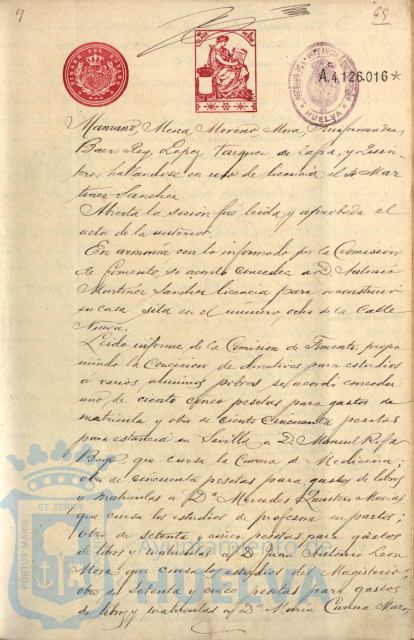 9
65
TIMBRE DEL ESTADO
A.4.126.016*
HUELVA
Manzano, Mena, Moreno, Mora,
Baez Rey, Lopez, Vazquez de Zapa, y Quin-
tero, hallandose en uso de licencia el Sr Mar-
tinez Sanchez.
Abierta la sesion fué leida y aprobada el
acta de la anterior.
En armonia con lo informado por la Comision
de Fomento, se acordó conceder a D. Antonio
Martinez Sanchez licencia para reconstruir
su casa sita en el número ocho de la Calle
Nueva.
Leido informe de la Comision de Fomento, propo-
niendo la Concesion de donativos para estudios
á varios alumnos pobres se acordó conceder
uno de ciento cinco pesetas para gastos de
matricula y otro de ciento cincuenta pesetas
para estancia en Sevilla a D. Manuel Rofa
que cursa la Carrera de Medicina;
otro de cincuenta pesetas para gastos de libros
y matriculas a Dª Mercedes Quintero Macias
que cursa los estudios de profesora en partos;
otro de setenta y cinco pesetas para gastos
de libros y matriculas a D. Juan Antonio Leon
Mora que cursa los estudios del Magisterio;
otro de setenta y cinco pesetas para gastos
de libros y matriculas a Dª Maria
PORTUS MARIS
ET TERRÆ
Ayuntamiento de
HUELVA